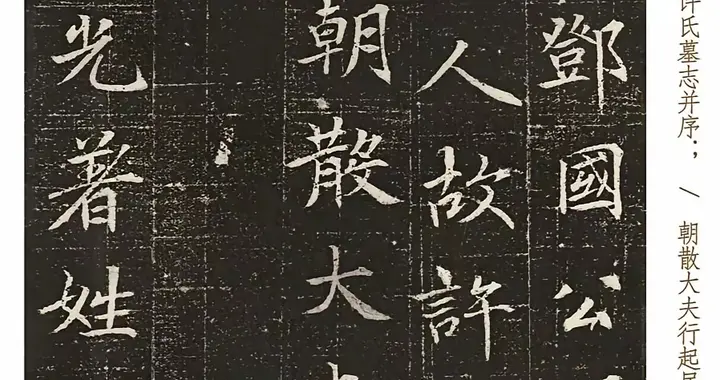 许氏墓志并序； / 朝散大夫行起居
鄧國公
人故許
朝散大
光著姓